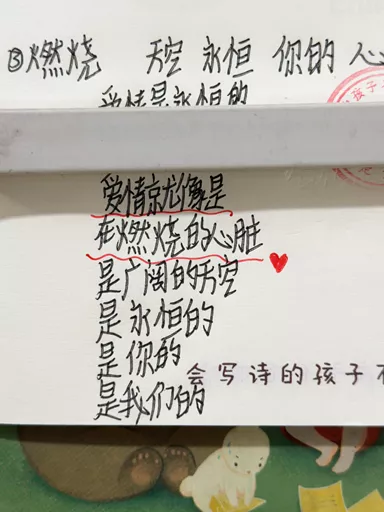 ③燃烧 天空 永恒 你的 心
爱情是永恒的
孩子
爱情就像是
在燃烧的心脏
是广阔的天空
是永恒的
是你的
会写诗的孩子不
是我们的